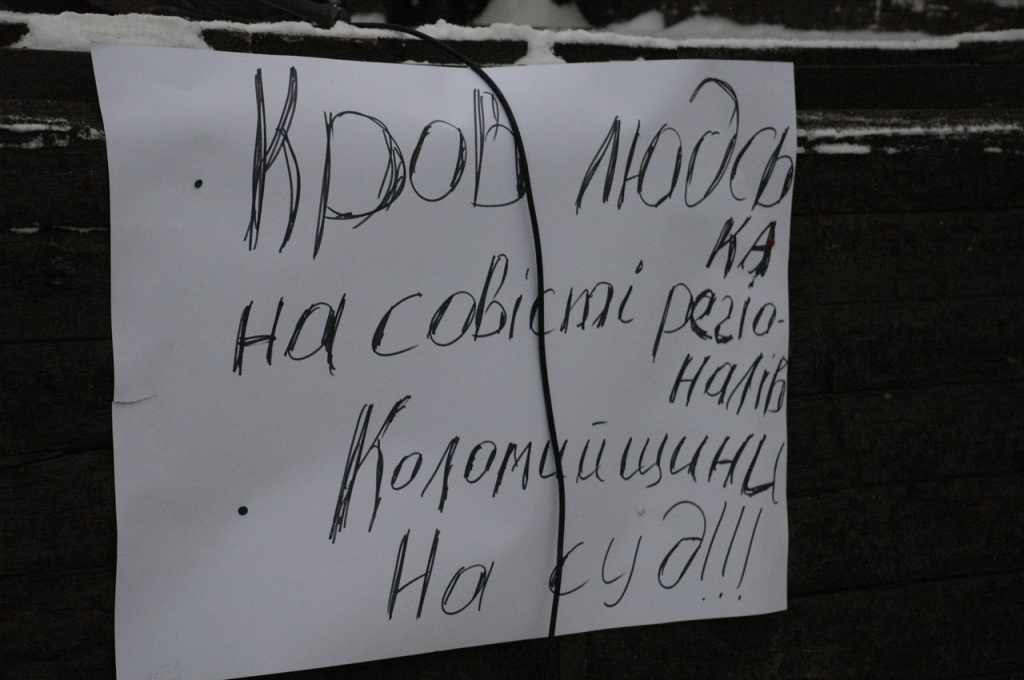 Кров людсь
ка
на совісті регіо-
налів
Коломийщини
На суд!!!